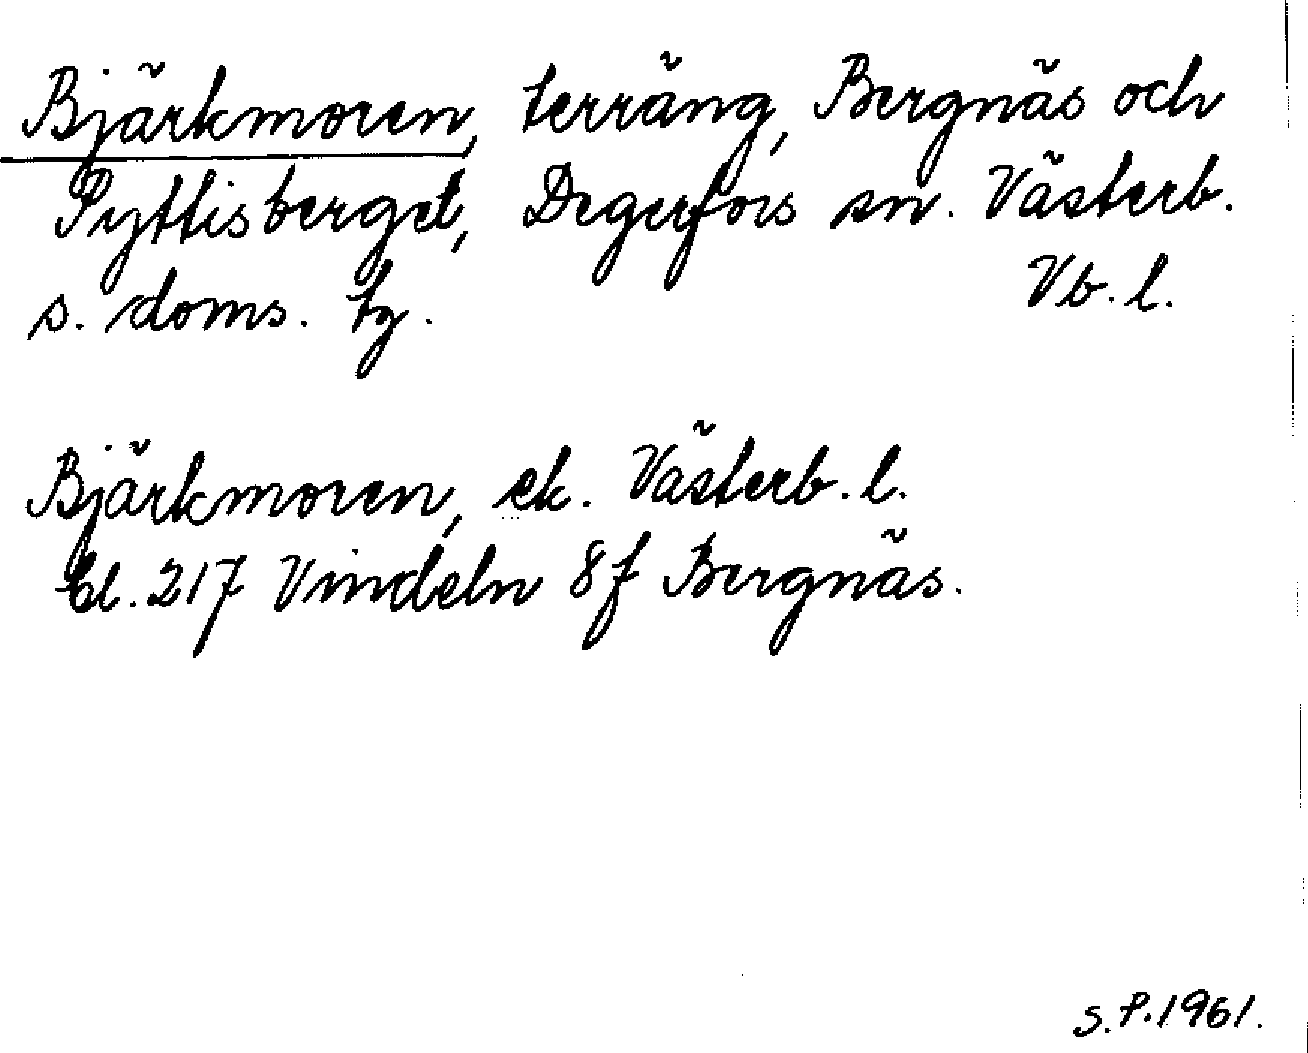 Bjärkmoren, terräng, Bergnäs och
Pyttisberget, Degerfors sn. Västerb.
s. doms. tg. Vb. l.
Bjärkmoren, ek. Västerb. l.
bl. 217 Vindeln 8f Bergnäs.
S. P. 1961.